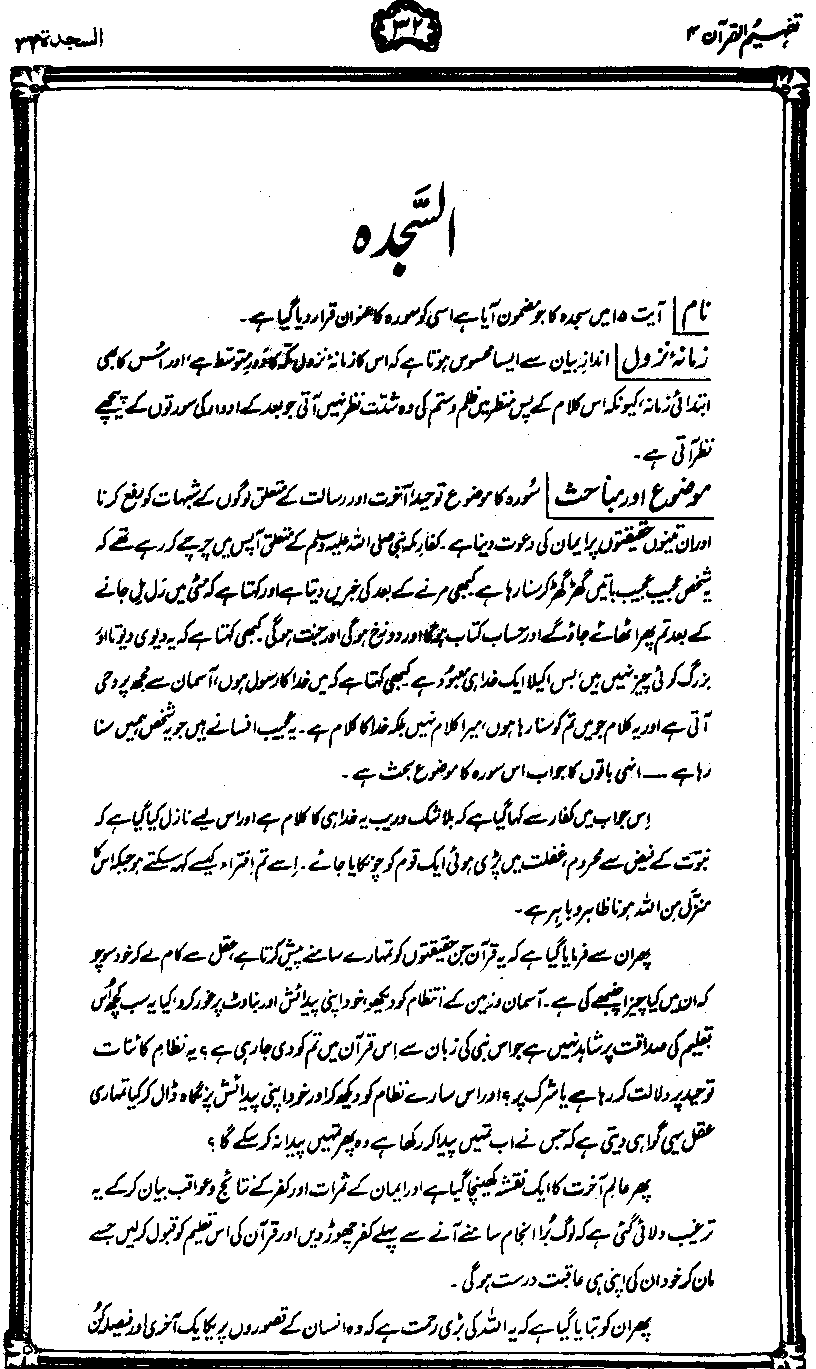 تفہیم القرآن ۴
۳۲
السجدۃ ۳۲
السَّجدہ
نام | آیت ۱۵ میں سجدہ کا جو مضمون آیا ہے اسی کو سورہ کا عنوان قرار دیا گیا ہے۔
زمانۂ نزول | اندازِ بیان سے ایسا محسوس ہوتا ہے کہ اس کا زمانۂ نزول مکہ کا دَورِ متوسط ہے، اور اُس کا بھی
ابتدائی زمانہ، کیونکہ اس کلام کے پس منظر میں ظلم و ستم کی وہ شدّت نظر نہیں آتی جو بعد کے ادوار کی سورتوں کے پیچھے
نظر آتی ہے۔
موضوع اور مباحث | سُورہ کا موضوع توحید، آخرت اور رسالت کے متعلق لوگوں کے شبہات کو رفع کرنا
اور ان تینوں حقیقتوں پر ایمان کی دعوت دینا ہے۔ کفارِ مکہ نبی صلی اللہ علیہ وسلم کے متعلق آپس میں چرچے کر رہے تھے کہ
یہ شخص عجیب عجیب باتیں گھڑ گھڑ کر سنا رہا ہے، کبھی مرنے کے بعد کی خبریں دیتا ہے اور کہتا ہے کہ مٹی میں رَل مِل جانے
کے بعد تم پھر اٹھائے جاؤ گے اور حساب کتاب ہوگا اور دوزخ ہوگی اور جنت ہوگی۔ کبھی کہتا ہے کہ یہ دیوی دیوتا اور
بزرگ کوئی چیز نہیں ہیں، بس اکیلا ایک خدا ہی معبود ہے۔ کبھی کہتا ہے کہ میں خدا کا رسول ہوں، آسمان سے مجھ پر وحی
آتی ہے اور یہ کلام جو میں تم کو سنا رہا ہوں، میرا کلام نہیں بلکہ خدا کا کلام ہے۔ یہ عجیب افسانے ہیں جو یہ شخص ہمیں سنا
رہا ہے — انہی باتوں کا جواب اس سورہ کا موضوعِ بحث ہے۔
اِس جواب میں کفار سے کہا گیا ہے کہ بلا شک و ریب یہ خدا ہی کا کلام ہے اور اس لیے نازل کیا گیا ہے کہ
نبوّت کے فیض سے محروم، غفلت میں پڑی ہوئی ایک قوم کو چونکایا جائے۔ اِسے تم افتراء کیسے کہہ سکتے ہو جبکہ اس کا
منزَّل مِن اللہ ہونا ظاہر و باہر ہے۔
پھر ان سے فرمایا گیا ہے کہ یہ قرآن جن حقیقتوں کو تمہارے سامنے پیش کرتا ہے، عقل سے کام لے کر خود سوچو
کہ ان میں کیا چیز اچنبھے کی ہے۔ آسمان و زمین کے انتظام کو دیکھو، خود اپنی پیدائش اور بناوٹ پر غور کرو، کیا یہ سب کچھ اُس
تعلیم کی صداقت پر شاہد نہیں ہے جو اس نبی کی زبان سے اِس قرآن میں تم کو دی جا رہی ہے؟ یہ نظامِ کائنات
توحید پر دلالت کر رہا ہے یا شرک پر؟ اور اس سارے نظام کو دیکھ کر اور خود اپنی پیدائش پر نگاہ ڈال کر کیا تمہاری
عقل یہی گواہی دیتی ہے کہ جس نے اب تمہیں پیدا کر رکھا ہے وہ پھر تمہیں پیدا نہ کر سکے گا؟
پھر عالمِ آخرت کا ایک نقشہ کھینچا گیا ہے اور ایمان کے ثمرات اور کفر کے نتائج و عواقب بیان کر کے یہ
ترغیب دلائی گئی ہے کہ لوگ بُرا انجام سامنے آنے سے پہلے کفر چھوڑ دیں اور قرآن کی اس تعلیم کو قبول کر لیں جسے
مان کر خود ان کی اپنی ہی عاقبت درست ہوگی۔
پھر ان کو بتایا گیا ہے کہ یہ اللہ کی بڑی رحمت ہے کہ وہ انسان کے قصوروں پر یکایک آخری اور فیصلہ کُن